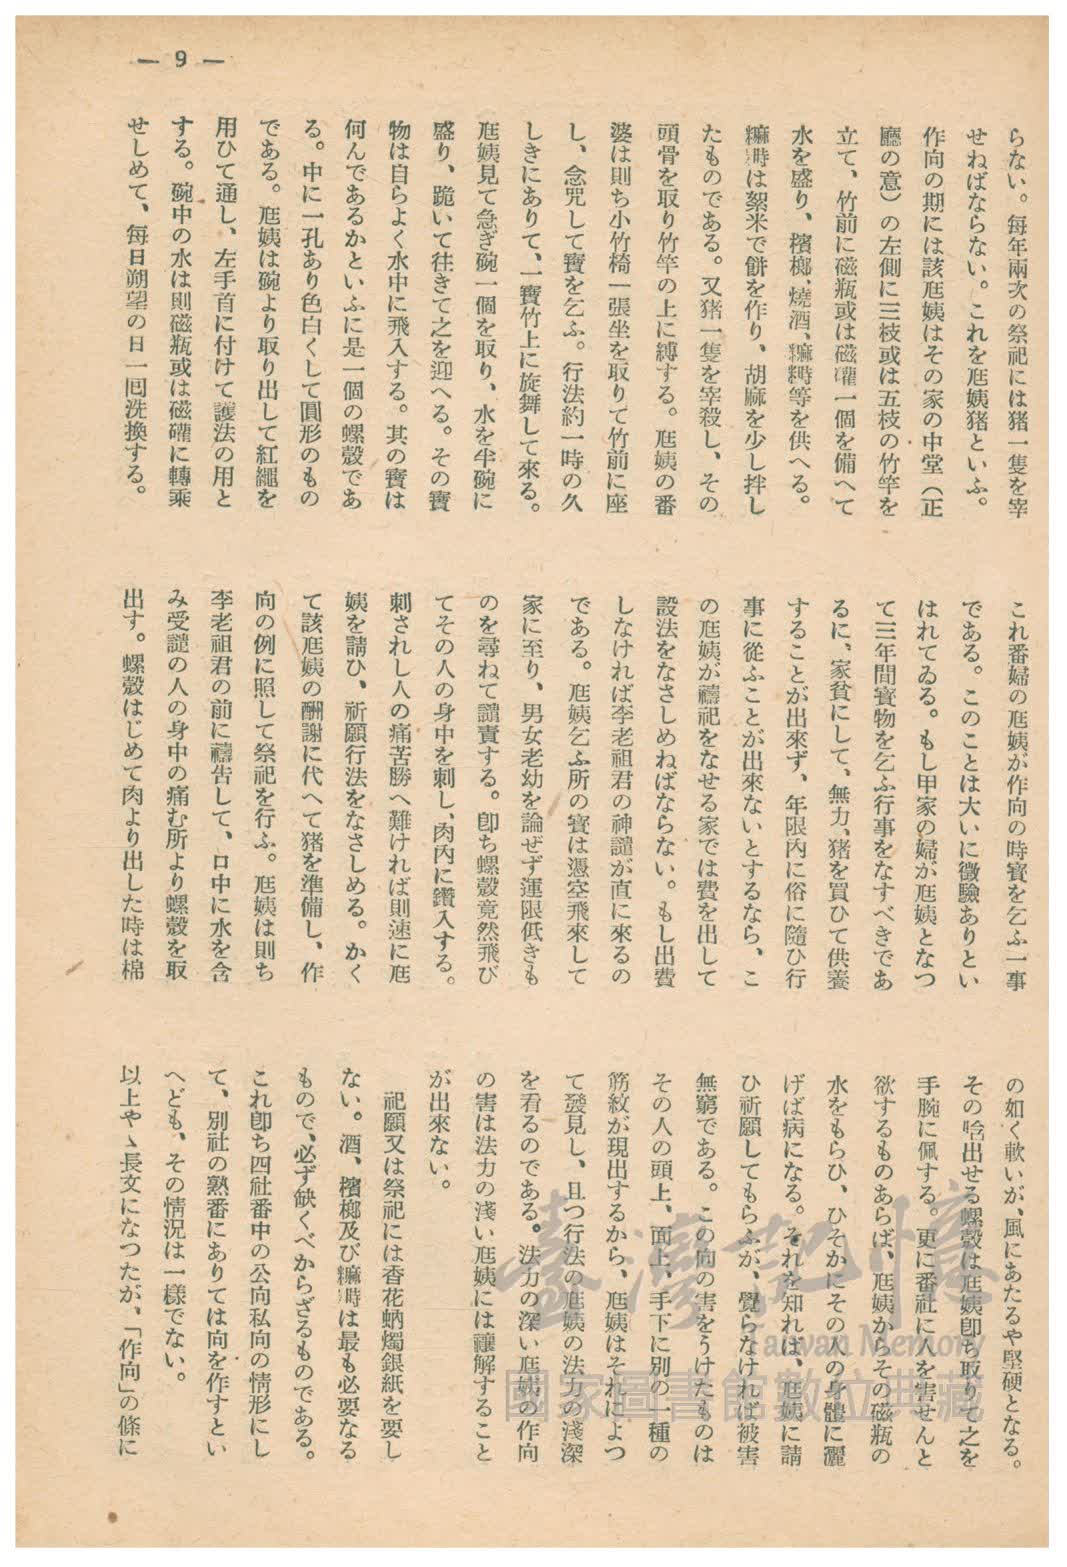 — 9 —
らない。每年兩次の祭祀には猪一隻を宰
せねばならない。これを尫姨猪といふ。
作向の期には該尫姨はその家の中堂（正
廳の意）の左側に三枝或は五枝の竹竿を
立て、竹前に磁瓶或は磁礶一個を備へて
水を盛り、檳榔、燒酒、糍等を供へる。
は絮米で餅を作り、胡麻を少し拌し
たものである。又猪一隻を宰殺し、その
頭骨を取り竹竿の上に縛する。尫姨の番
婆は則ち小竹椅一張坐を取りて竹前に座
し、念咒して寶を乞ふ。行法約一時の久
しきにありて、一寶竹上に旋舞して來る。
尫姨見て急ぎ碗一個を取り、水を半碗に
盛り、跪いて往きて之を迎へる。その寶
物は自らよく水中に飛入する。其の寶は
何んであるかといふに是一個の螺殼であ
る。中に一孔あり色白くして圓形のもの
である。尫姨は碗より取り出して紅繩を
用ひて通し、左手首に付けて護法の用と
する。碗中の水は則磁瓶或は磁礶に轉乘
せしめて、每日朔望の日一囘洗換する。
これ番婦の尫姨が作向の時寶を乞ふ一事
である。このことは大いに徵驗ありとい
はれてゐる。もし甲家の婦が尫姨となつ
て三年間寶物を乞ふ行事をなすべきであ
るに、家貧にして、無力、猪を買ひて供養
することが出來ず、年限內に俗に隨ひ行
事に從ふことが出來ないとするなら、こ
の尫姨が禱祀をなせる家では費を出して
設法をなさしめねばならない。もし出費
しなければ李老祖君の神譴が直に來るの
である。尫姨乞ふ所の寶は憑空飛來して
家に至り、男女老幼を論ぜず運限低きも
のを尋ねて譴責する。卽ち螺殼竟然飛び
てその人の身中を刺し、肉內に鑽入する。
刺されし人の痛苦勝へ難ければ則速に尫
姨を請ひ、祈願行法をなさしめる。かく
て該尫姨の酬謝に代へて猪を準備し、作
向の例に照して祭祀を行ふ。尫姨は則ち
李老祖君の前に禱告して、口中に水を含
み受譴の人の身中の痛む所より螺殼を取
出す。螺殼はじめて肉より出した時は棉
の如く軟いが、風にあたるや堅硬となる。
その唅出せる螺殼は尫姨卽ち取りて之を
手腕に佩する。更に番社に人を害せんと
欲するものあらば、尫姨からその磁瓶の
水をもらひ、ひそかにその人の身體に灑
げば病になる。それを知れば、尫姨に請
ひ祈願してもらふが、覺らなければ被害
無窮である。この向の害をうけたものは
その人の頭上、面上、手下に別の一種の
筋紋が現出するから、尫姨はそれによつ
て發見し、且つ行法の尫姨の法力の淺深
を看るのである。法力の深い尫姨の作向
の害は法力の淺い尫姨には禳解すること
が出來ない。
祀願又は祭祀には香花蚋燭銀紙を要し
ない。酒、檳榔及びは最も必要なる
もので、必ず缺くべからざるものである。
これ卽ち四社番中の公向私向の情形にし
て、別社の熟番にありては向を作すとい
へども、その情況は一樣でない。
以上やゝ長文になつたが、「作向」の條に
臺灣記憶
Taiwan Memory
國家圖書館數位典藏